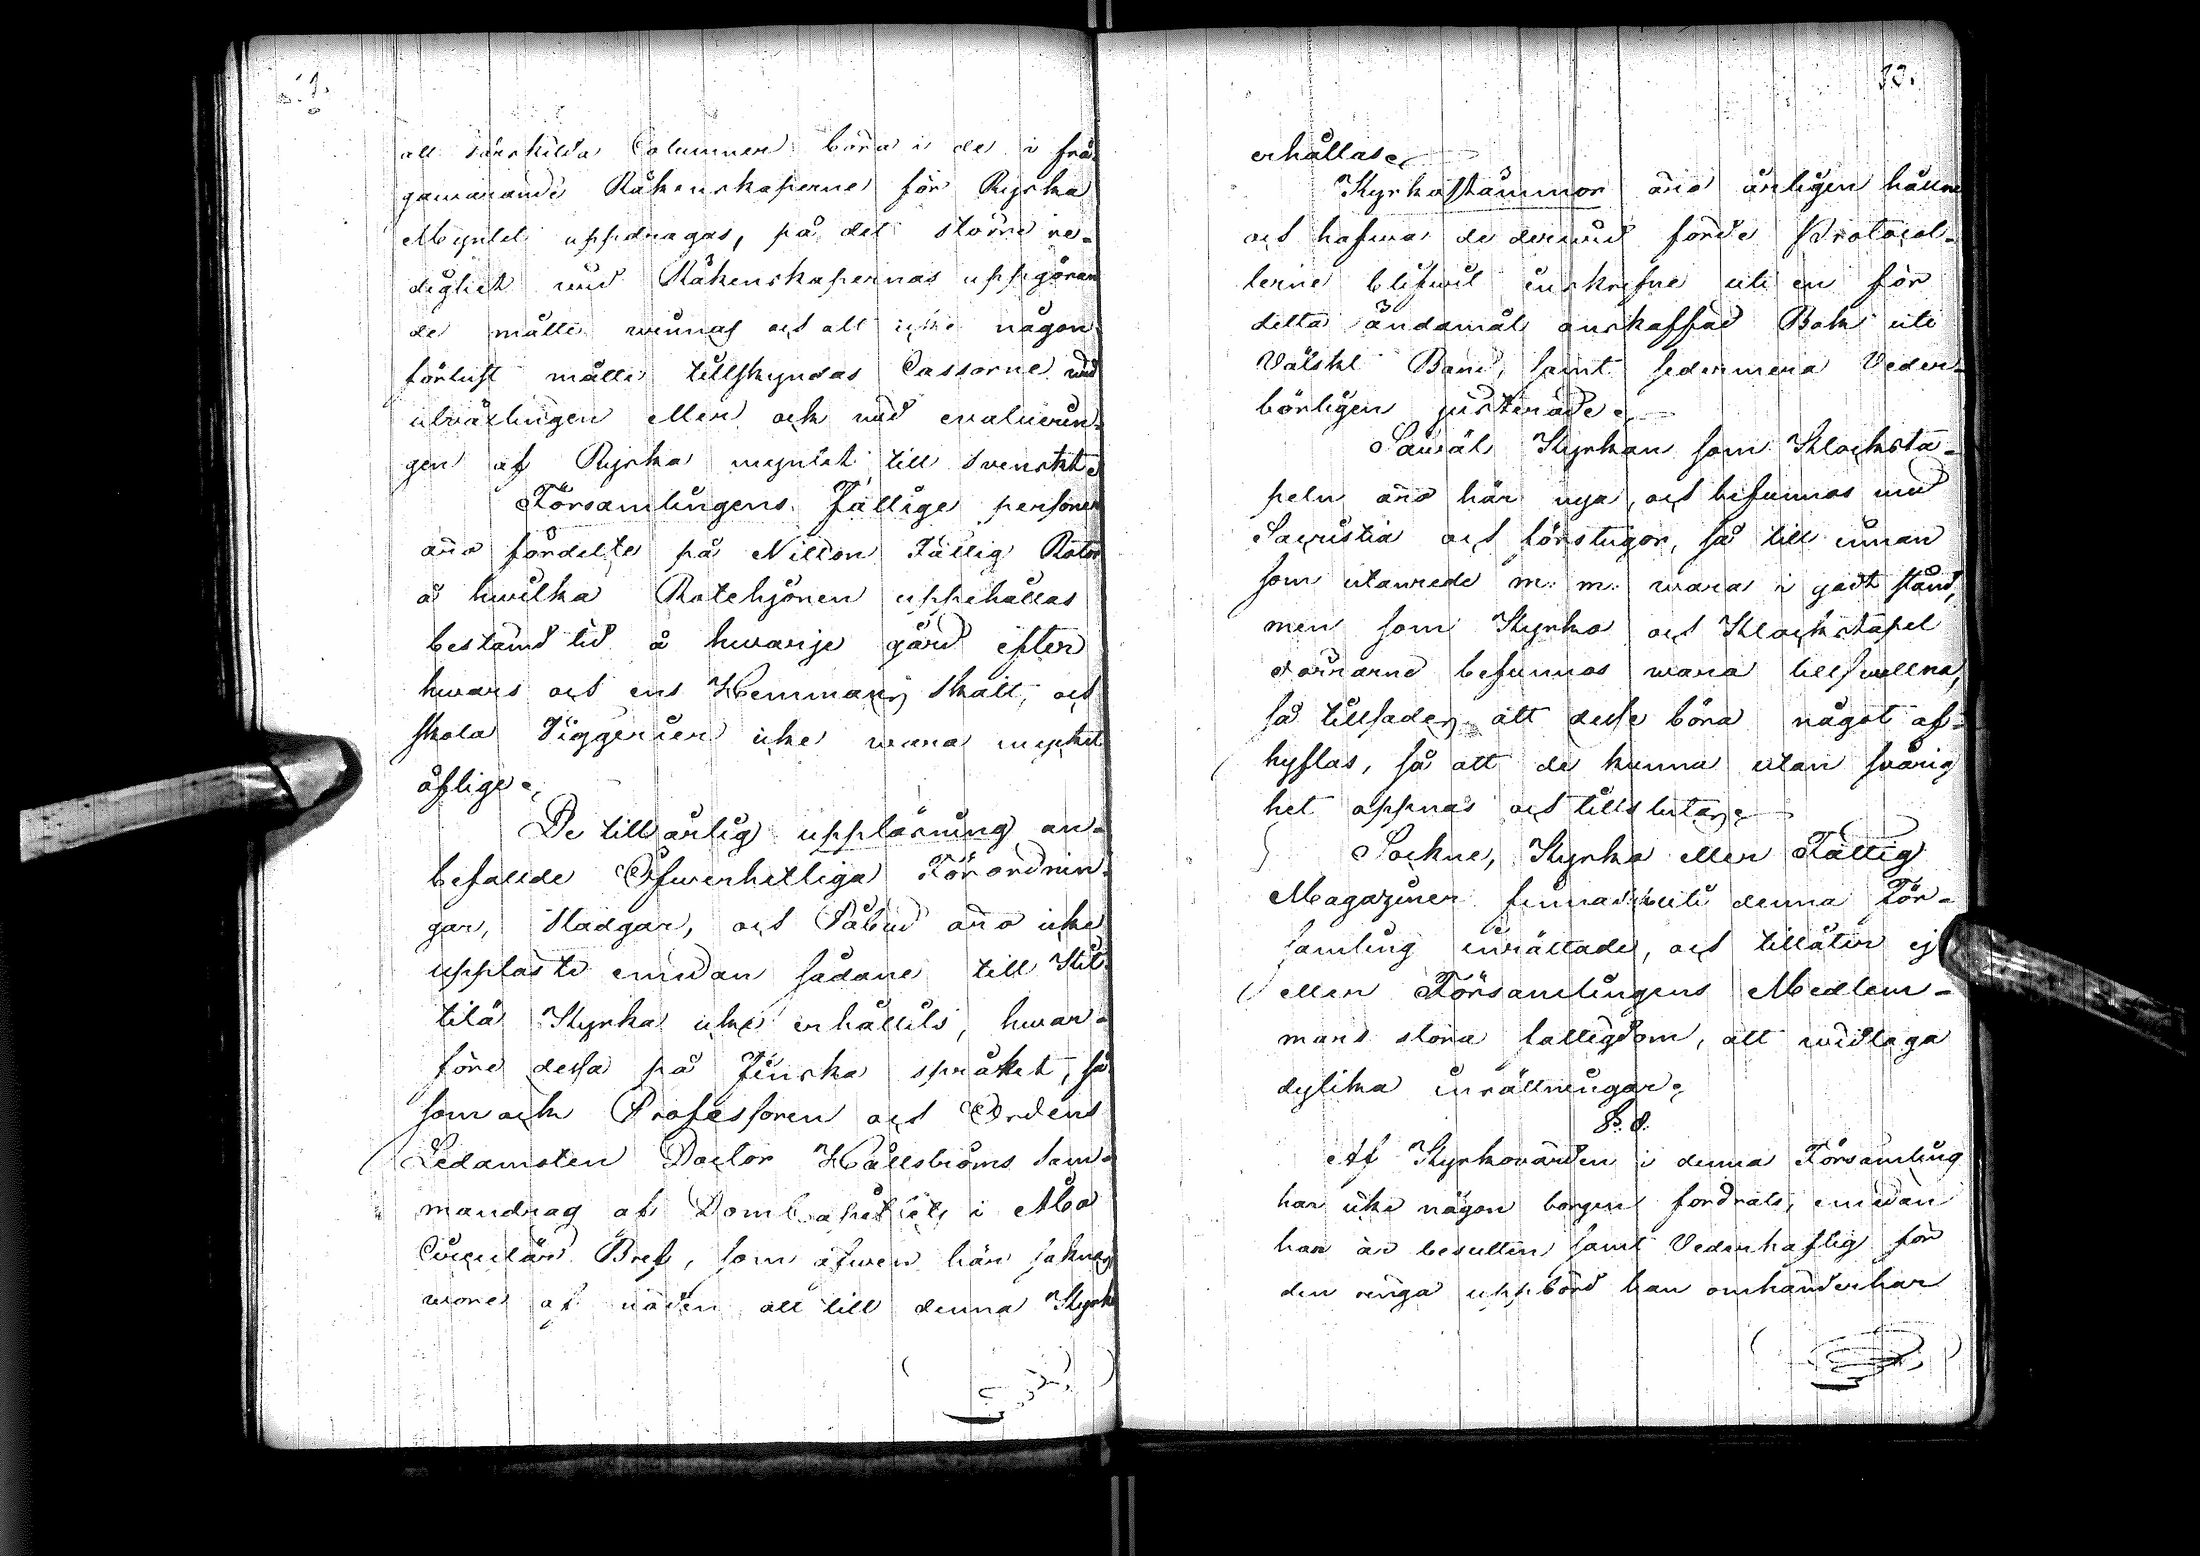 att särskilda Columner böra i de i frå-
gawarande Räkenskaperne för Ryska
Myntet uppdragas, på det större re-
dighet wid Räkenskapernas uppgöran
de måtte winnas och att icke någon
förlust måtte tillskyndas Cassorne wid
utväxlingen eller ock wid evaluerin-
gen af Ryska myntet till Svenskt.
Församlingens Fattige personer
äro fördelte på Nitton Fattig Rotor
å hwilka Rotehjonen uppehållas
bestämd tid å hwarje gård efter
hwars och ens Hemmans skatt, och
skola Tiggerier icke wara mycket
öflige.
De till årlig uppläsning an-
befallde Öfwerhetliga Förordnin-
gar, Stadgar, och Påbud äro icke
uppläste emedan sådane till Kit-
tilä Kyrka icke erhållits, hwar-
före dessa på Finska språket, så
som ock Professoren och Ordens
Ledamoten Doctor Hällströms Sam-
mandrag af Dom Capitlets i Åbo
Circulär Bref, som äfwen här saknas
wore af nöden att till denna Kyrka
33.
erhållas.
Kyrkostämmor äro årligen hålne
och hafwa de derwid förde Protocol-
lerne blifwit inskrefne uti en för
detta ändamål anskaffad Bok uti
Välskt Band, samt sedermera Veder-
börligen justerade.
Såwäl Kyrkan som Klocksta-
peln äro här nya, och befunnos med
Sacristia och förstugor, så till innan
som utanrede m: m: wara i godt stånd,
men som Kyrko och Klockstapel
dörrarne befunnos wara tillswällna,
så tillsades att desse böra något af-
hyflas, så att de kunna utan swårig
het öppnas och tillslutas.
Sockne, Kyrko eller Fattig
Magaziner finnas icke uti denna För-
samling inrättade, och tillåter ej
eller Församlingens Medlem-
mars stora fattigdom, att widtaga
dylika inrättningar.
§. 8.
Af Kyrkovärden i denna Församling
har icke någon borgen fordrats, emedan
han är besutten samt Vederhäftig för
den ringa uppbörd han omhänderhar